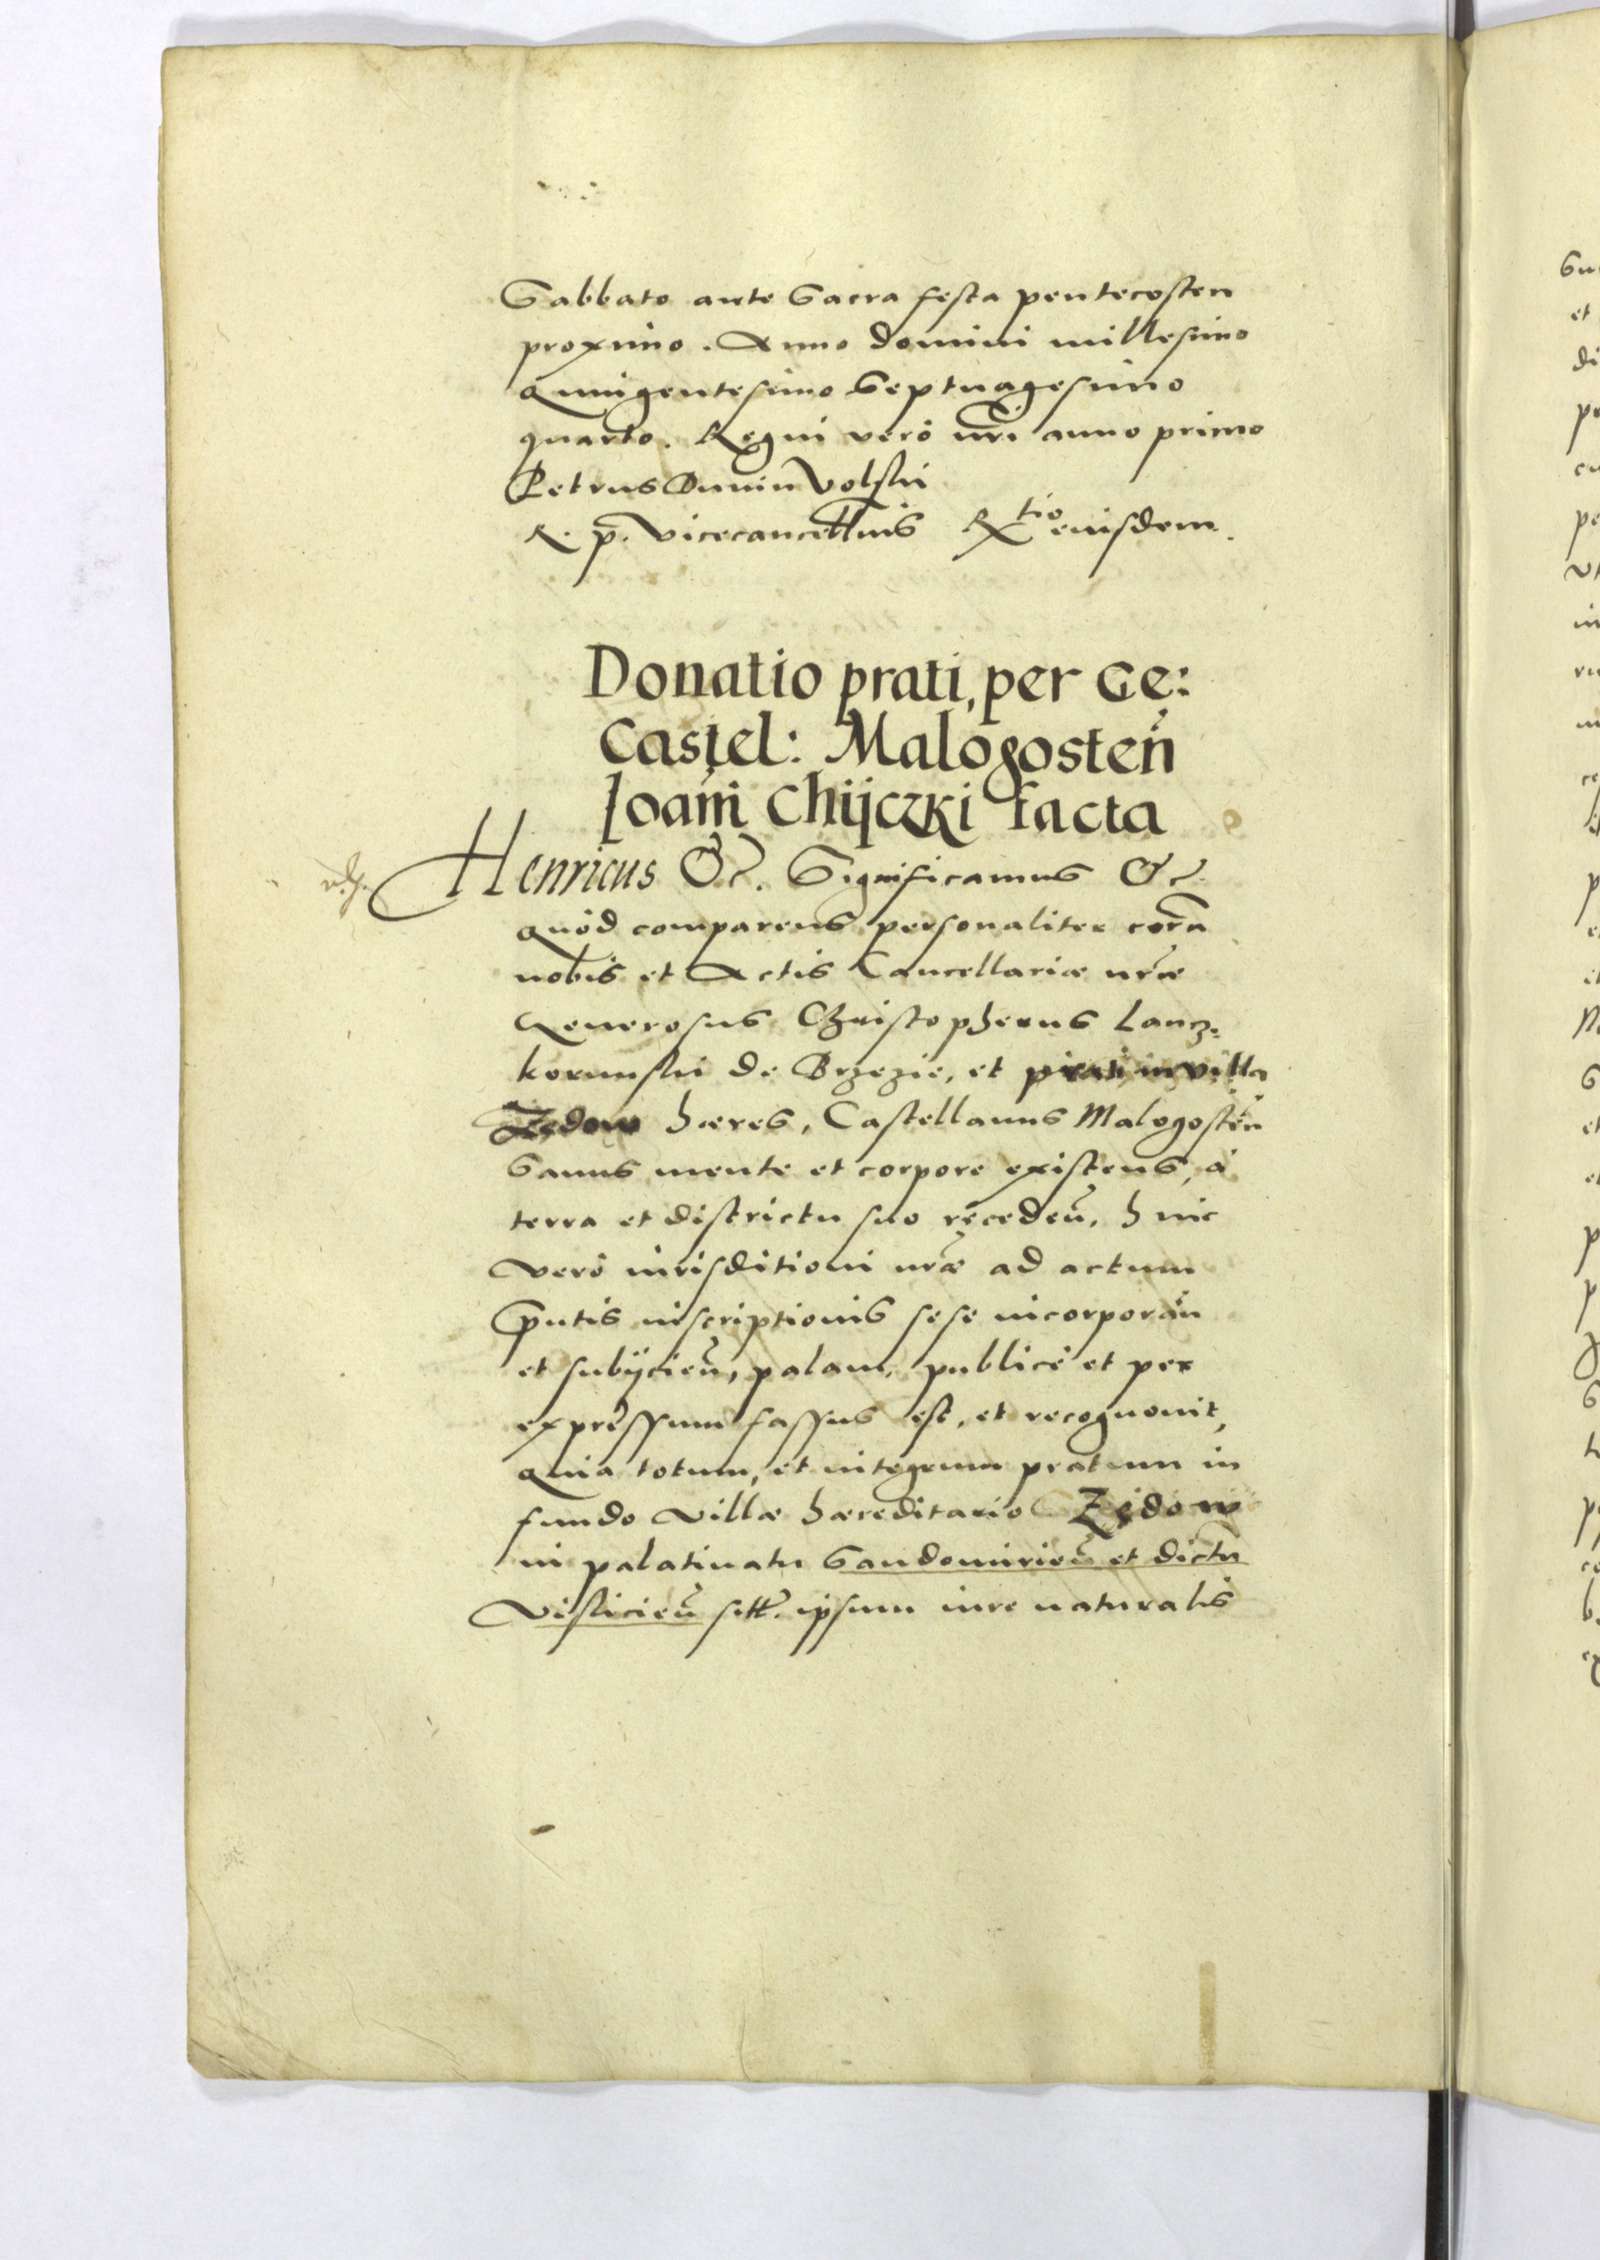 Sabbato ante Sacra festa pentecosten
proximo. Anno domini millesimo
Quingentesimo Septuagesimo
quarto. Regni verò nr̃i anno primo
Petrus Dunin Volski
R. p. Vicecancellarius Rtio eiusdem.
Donatio prati, per Ge:
Castel: Malogosteñ
Ioanni Chijczki facta
Henricus &c. Significamus &c.
Quòd comparens personaliter corã
nobis et Actis Cancellariæ nr̃æ
Generosus Christopherus Lancz-
korunski de Brzezie, et prati in villa
Zędow hæres, Castellanus Malogosteñ
Sanus mente et corpore existens, à
terra et districtu suo recedeñ, huic
verò iurisditioni nr̃æ ad actum
p̃ntis inscriptionis sese incorporañ
et subijcieñ, palam, publicè et per
expressum fassus est, et recognouit,
Quia totum, et integrum pratum in
fundo villæ hæreditario Zędow
in palatinatu Sandomirieñ et dictu
Vislicieñ sitt. ipsum iure naturalis